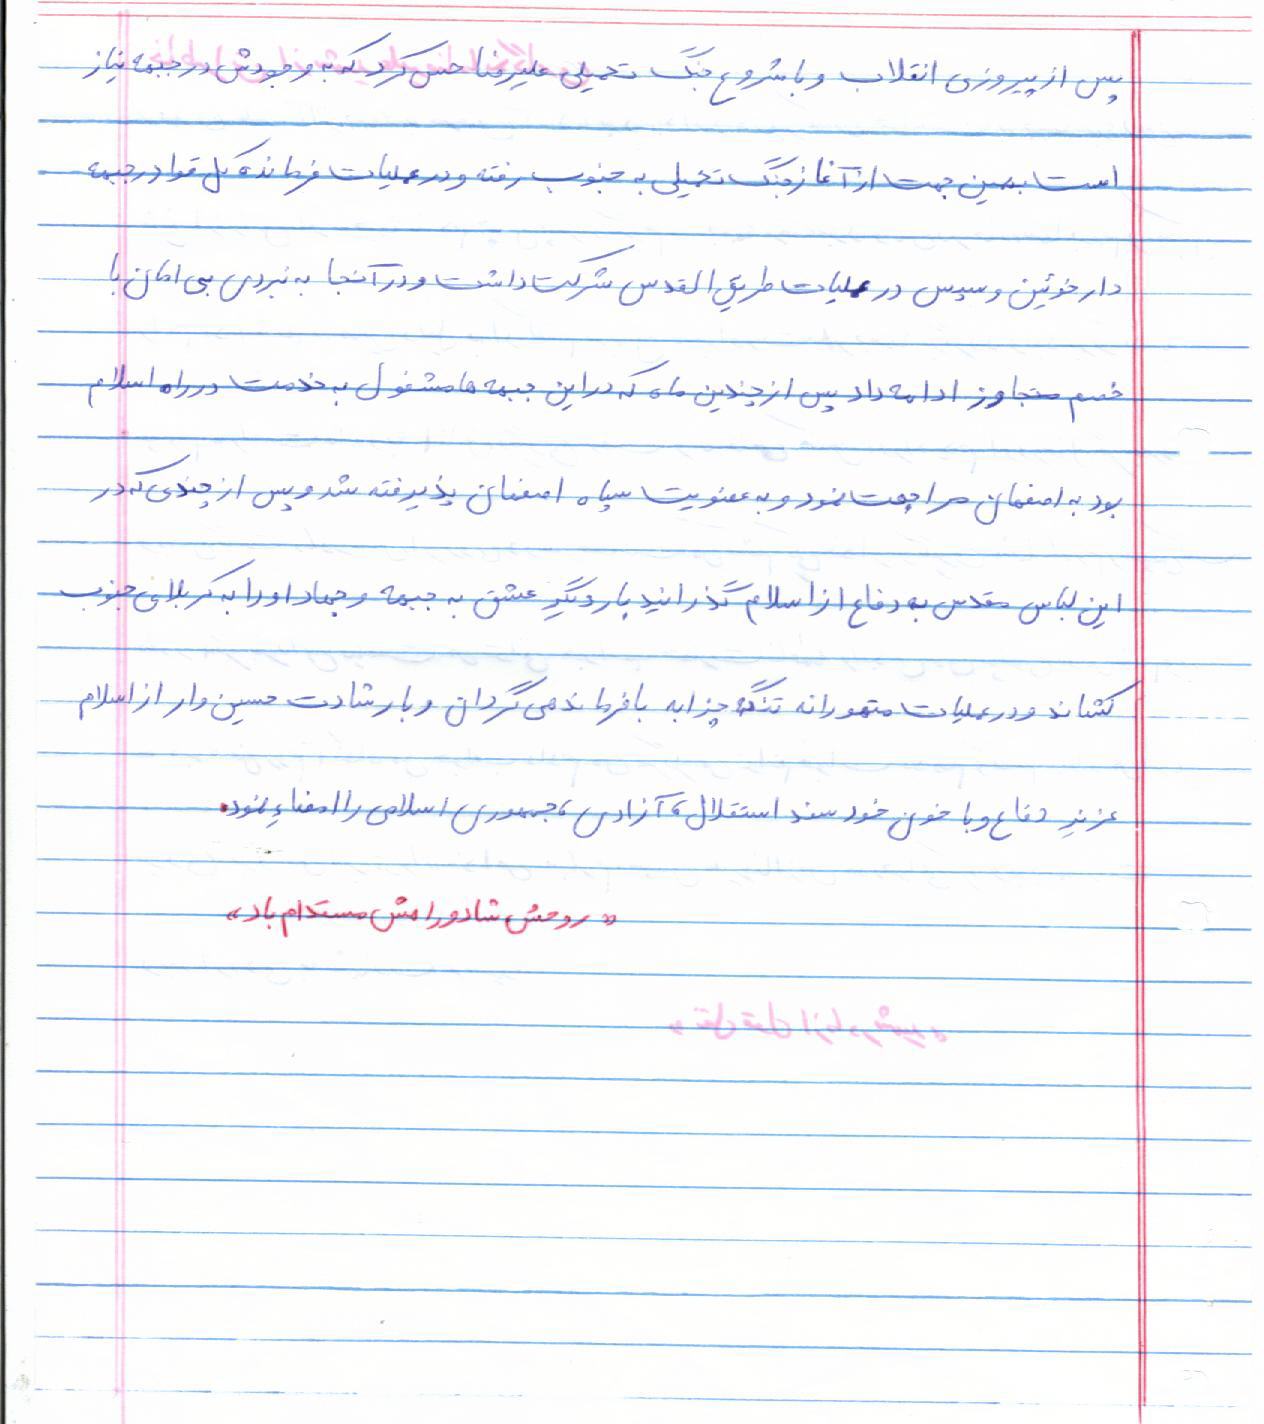 پس از پیروزی انقلاب و با شروع جنگ تحمیلی علیرضا حس کرد که به وجودش در جبهه نیاز
است بهمین جهت از آغاز جنگ تحمیلی به جنوب رفته و در عملیات فرمانده کل قوا در جبهه
دارخوئین و سپس در عملیات طریق القدس شرکت داشت و در آنجا به نبردی بی امان با
خصم متجاوز ادامه داد پس از چندین ماه که در این جبهه ها مشغول به خدمت در راه اسلام
بود به اصفهان مراجعت نمود و به عضویت سپاه اصفهان پذیرفته شد و پس از چندی که در
این لباس مقدس به دفاع از اسلام گذرانید بار دیگر عشق به جبهه و جهاد او را به کربلای جنوب
کشاند و در عملیات متهورانه تنگه چزابه با فرماندهی گردان و با رشادت حسین وار از اسلام
عزیز دفاع و با خون خود سند استقلال، آزادی، جمهوری اسلامی را امضاء نمود.
«روحش شاد و راهش مستدام باد»